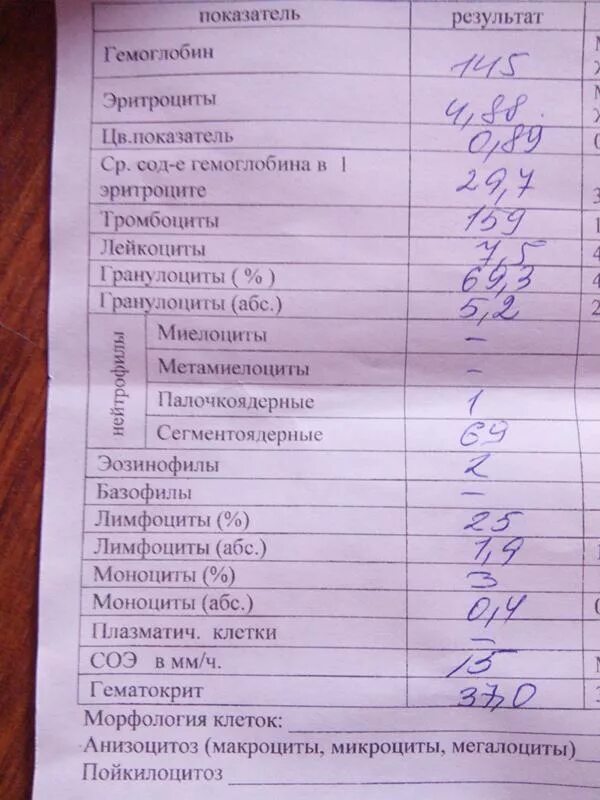 показатель результат
Гемоглобин 145
Эритроциты 4,88.
Цв.показатель 0,89
Ср. сод-е гемоглобина в 1
эритроците 29,7
Тромбоциты 159
Лейкоциты 7,5
Гранулоциты ( % ) 69,3
Гранулоциты (абс.) 5,2
нейтрофилы
Миелоциты –
Метамиелоциты –
Палочкоядерные 1
Сегментоядерные 69
Эозинофилы 2
Базофилы –
Лимфоциты (%) 25
Лимфоциты (абс.) 1,9
Моноциты (%) 3
Моноциты (абс.) 0,4
Плазматич. клетки –
СОЭ в мм/ч. 15
Гематокрит 37,0
Морфология клеток:
Анизоцитоз (макроциты, микроциты, мегалоциты)
Пойкилоцитоз